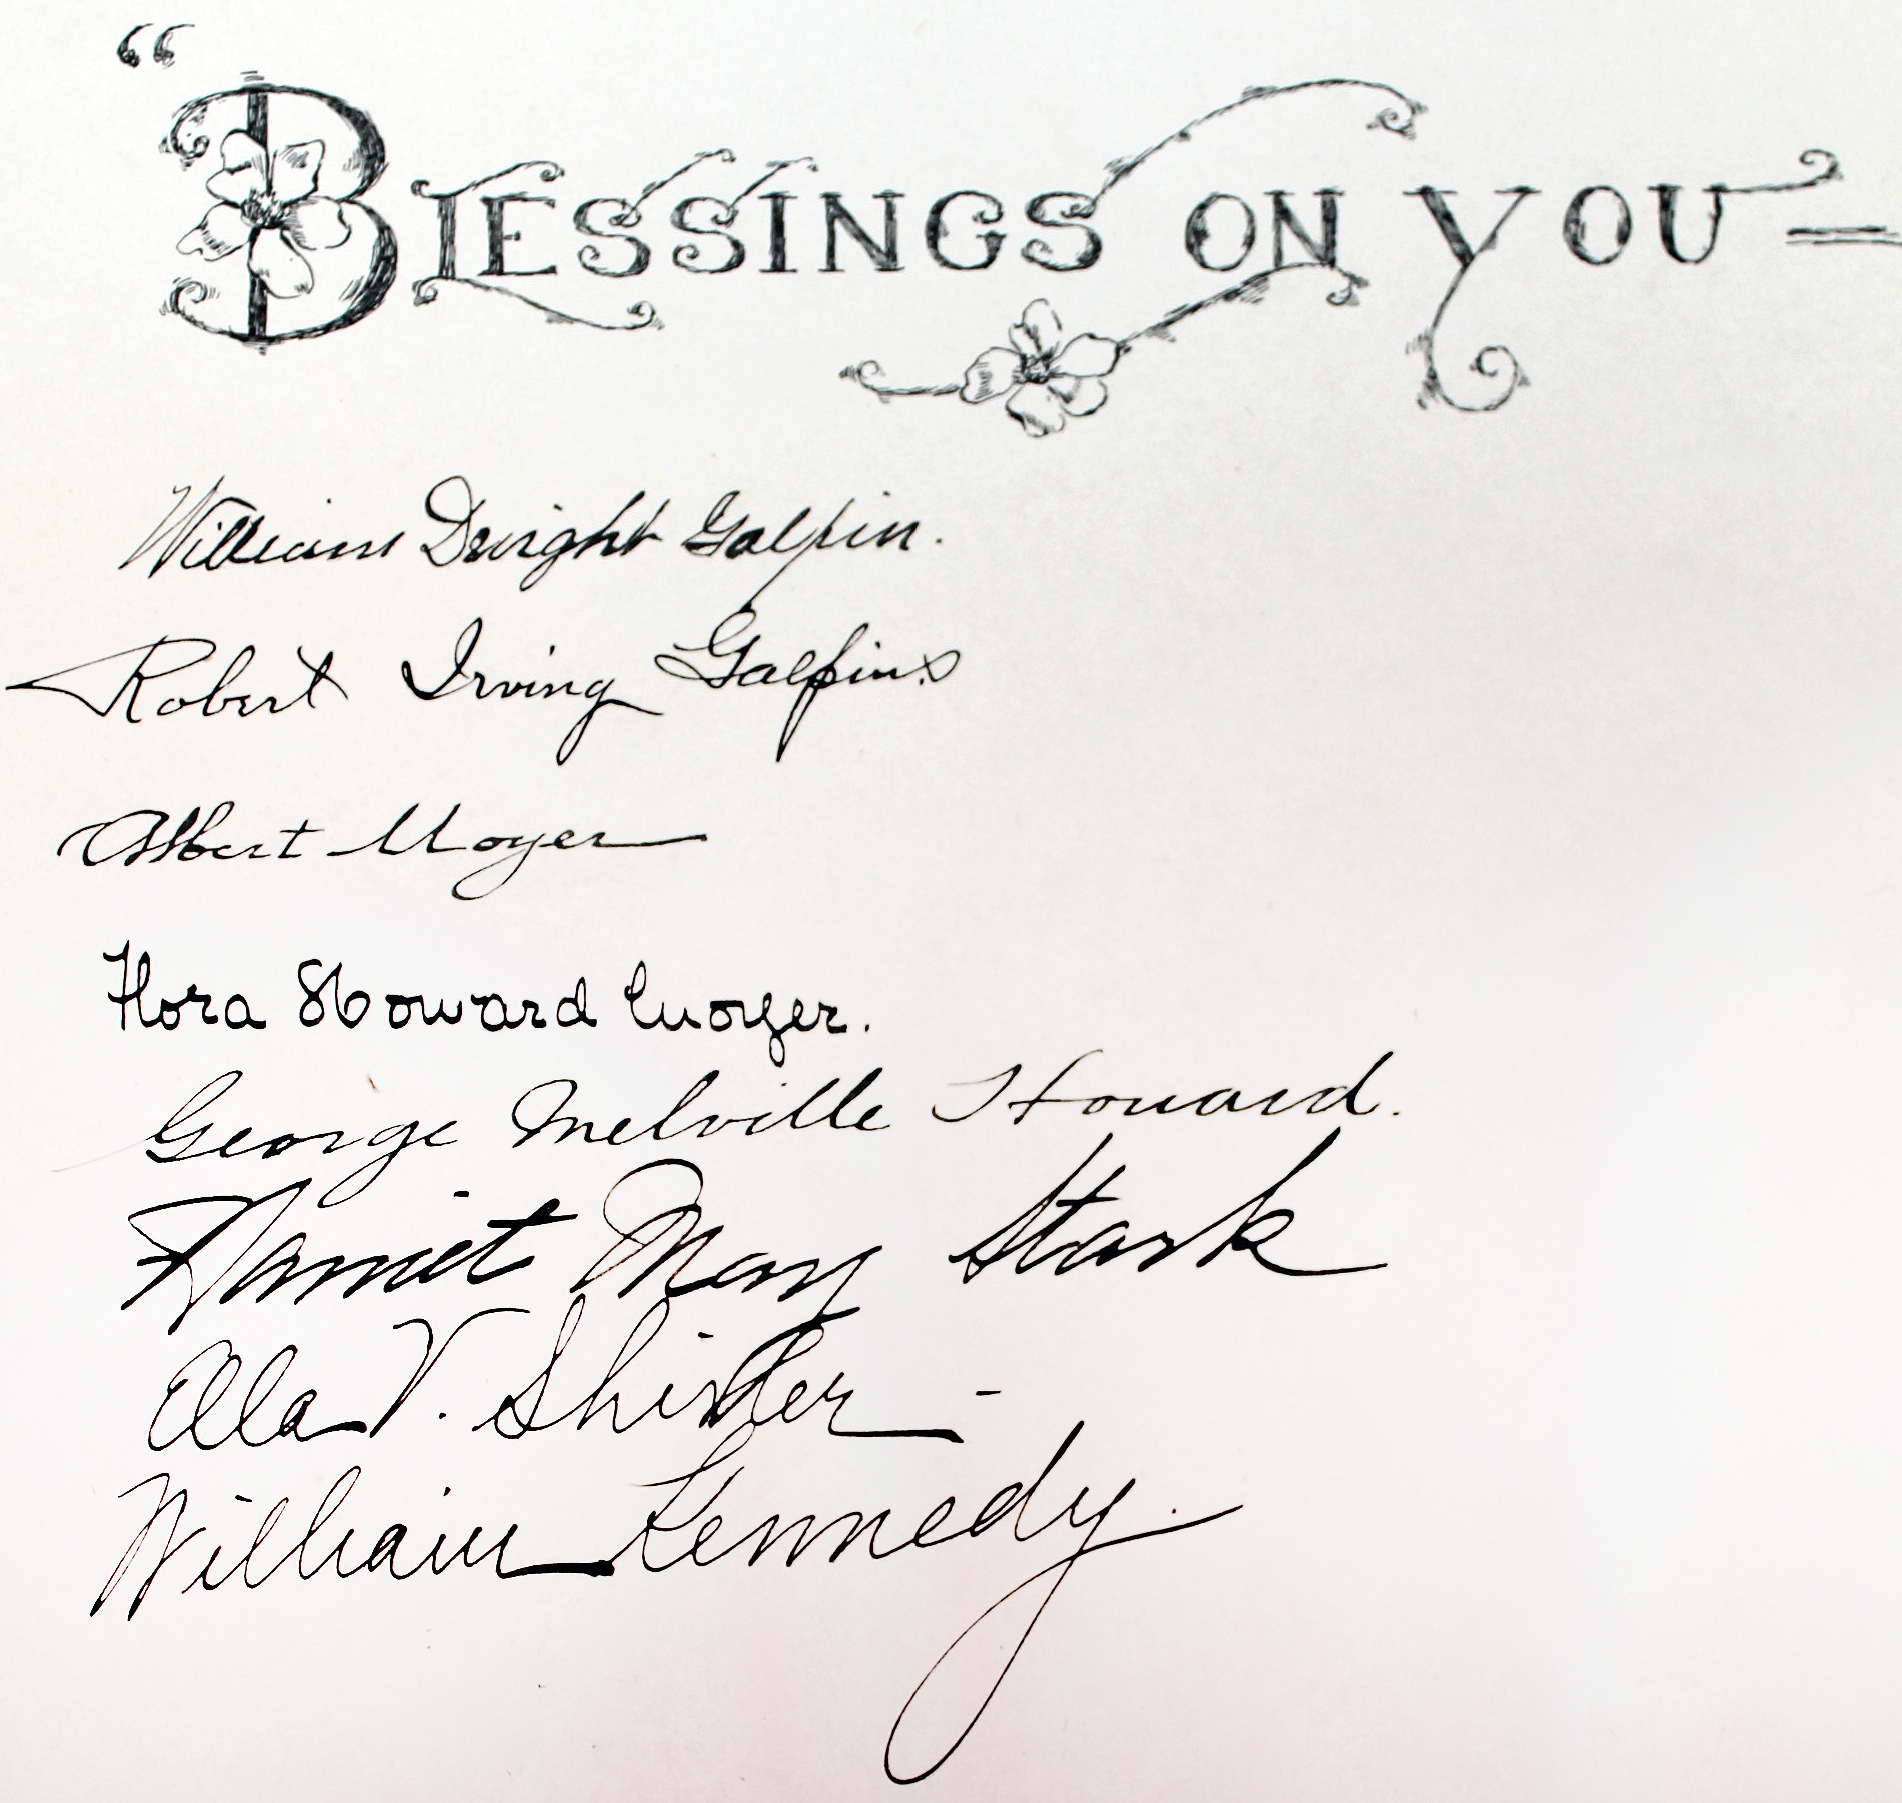 “BLESSINGS ON YOU —
William Dwight Galpin.
Robert Irving Galpin.
Albert Moyer
Flora Howard Moyer.
George Melville Howard.
Harriet May Stark
Ella V.
William Kennedy.